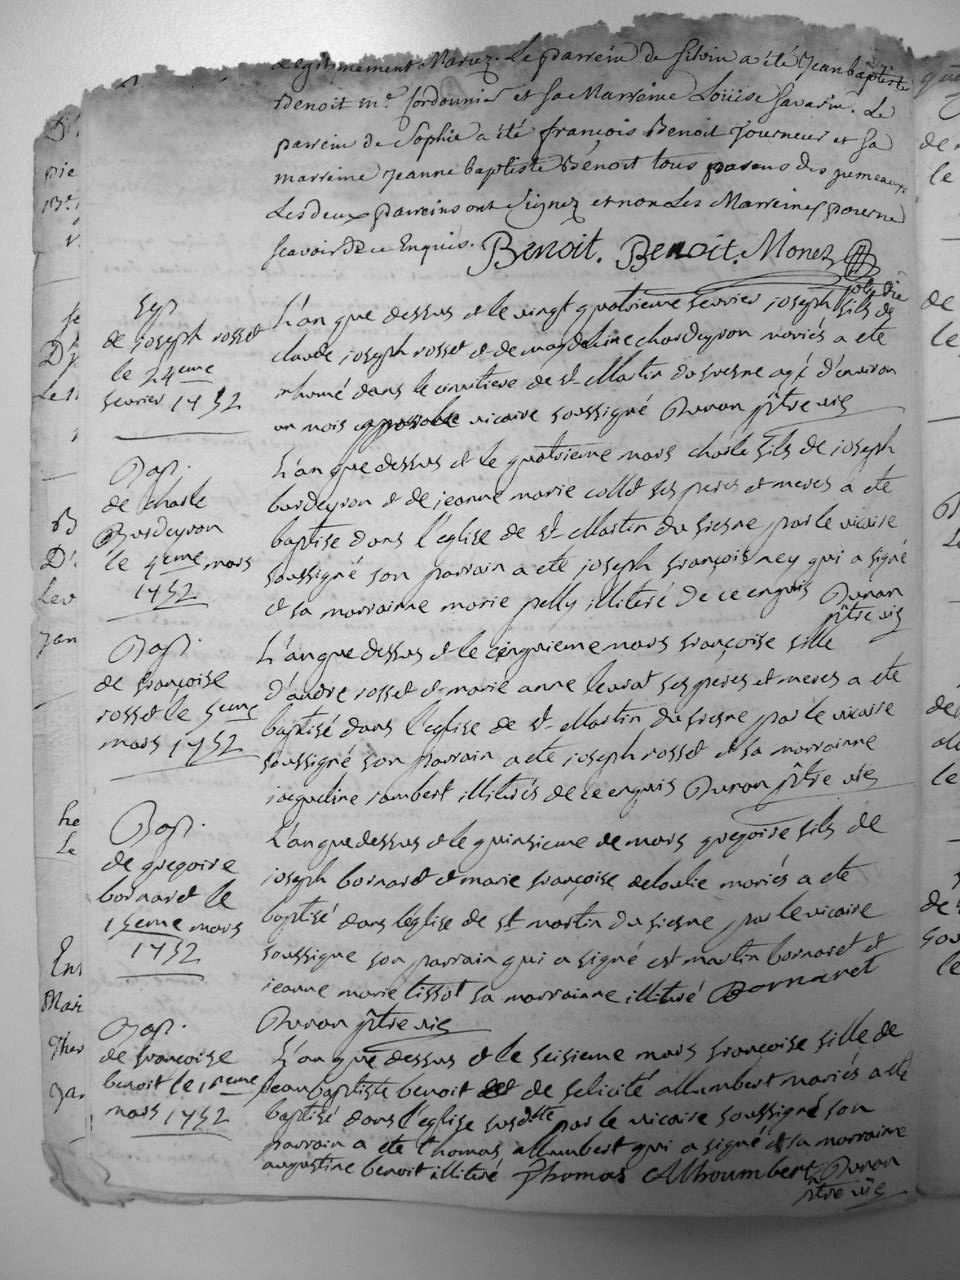 legitimement Mariez. Le parrein de Silvin a été Jean baptiste
Benoit me. Cordounier et sa Marreine Louïse Savarin. Le
parrein de Sophie a été françois Benoit Journeur et sa
marreine Jeanne baptiste Bénoit tous parens des jumeaux
Les deux parreins ont signez et non les Marreines pour ne
scavoir de ce Enquis. Benoit. Benoit. Monez
Sep
de joseph rosset
le 24eme
fevrier 1752
L'an que dessus et le vingt quatrieme fevrier joseph fils de
claude joseph rosset et de magdeleine chardeyron mariés a ete
inhumé dans le cimitiere de st Martin du fresne agé d'environ
un mois vicaire soussigné Dunan ptre vic
Bap.
de charle
Bardeyron
le 4eme mars
1752
L'an que dessus et le quatrieme mars charle fils de joseph
bardeyron et de jeanne marie collet ses peres et meres a ete
baptise dans l'église de st Martin du fresne par le vicaire
soussigné son parrain a ete joseph françois ney qui a signé
et sa marrainne marie pelly illiteré de ce enquis Dunan
ptre vic
Bap.
de françoise
rosset le 5eme
mars 1752
L'an que dessus et le cinquieme mars françoise fille
d'andre rosset et marie anne levrat ses peres et meres a ete
baptisé dans l'eglise de st Martin du fresne par le vicaire
soussigné son parrain a ete joseph rosset et sa marrainne
jacqueline rambert illiterés de ce enquis Dunan ptre vic
Bap.
de gregoire
bornaret le
15eme mars
1752
L'an que dessus et le quinsieme de mars gregoire fils de
joseph bornaret et marie françoise deloulie mariés a ete
baptisé dans l'eglise de st martin du fresne par le vicaire
soussigne son parrain qui a signé est martin bornaret et
jeanne marie tissot sa marrainne illiteré Bornaret
Dunan ptre vic
Bap.
de françoise
benoit le 16eme
mars 1752
L'an que dessus et le seisieme mars françoise fille de
jean baptiste benoit et de felicité allumbert mariés a ete
baptisé dans l'eglise susdite par le vicaire soussigné son
parrain a ete thomas allumbert qui a signé et sa marrainne
augustine benoit illiteré Thomas Alhoumbert Dunan
ptre vic